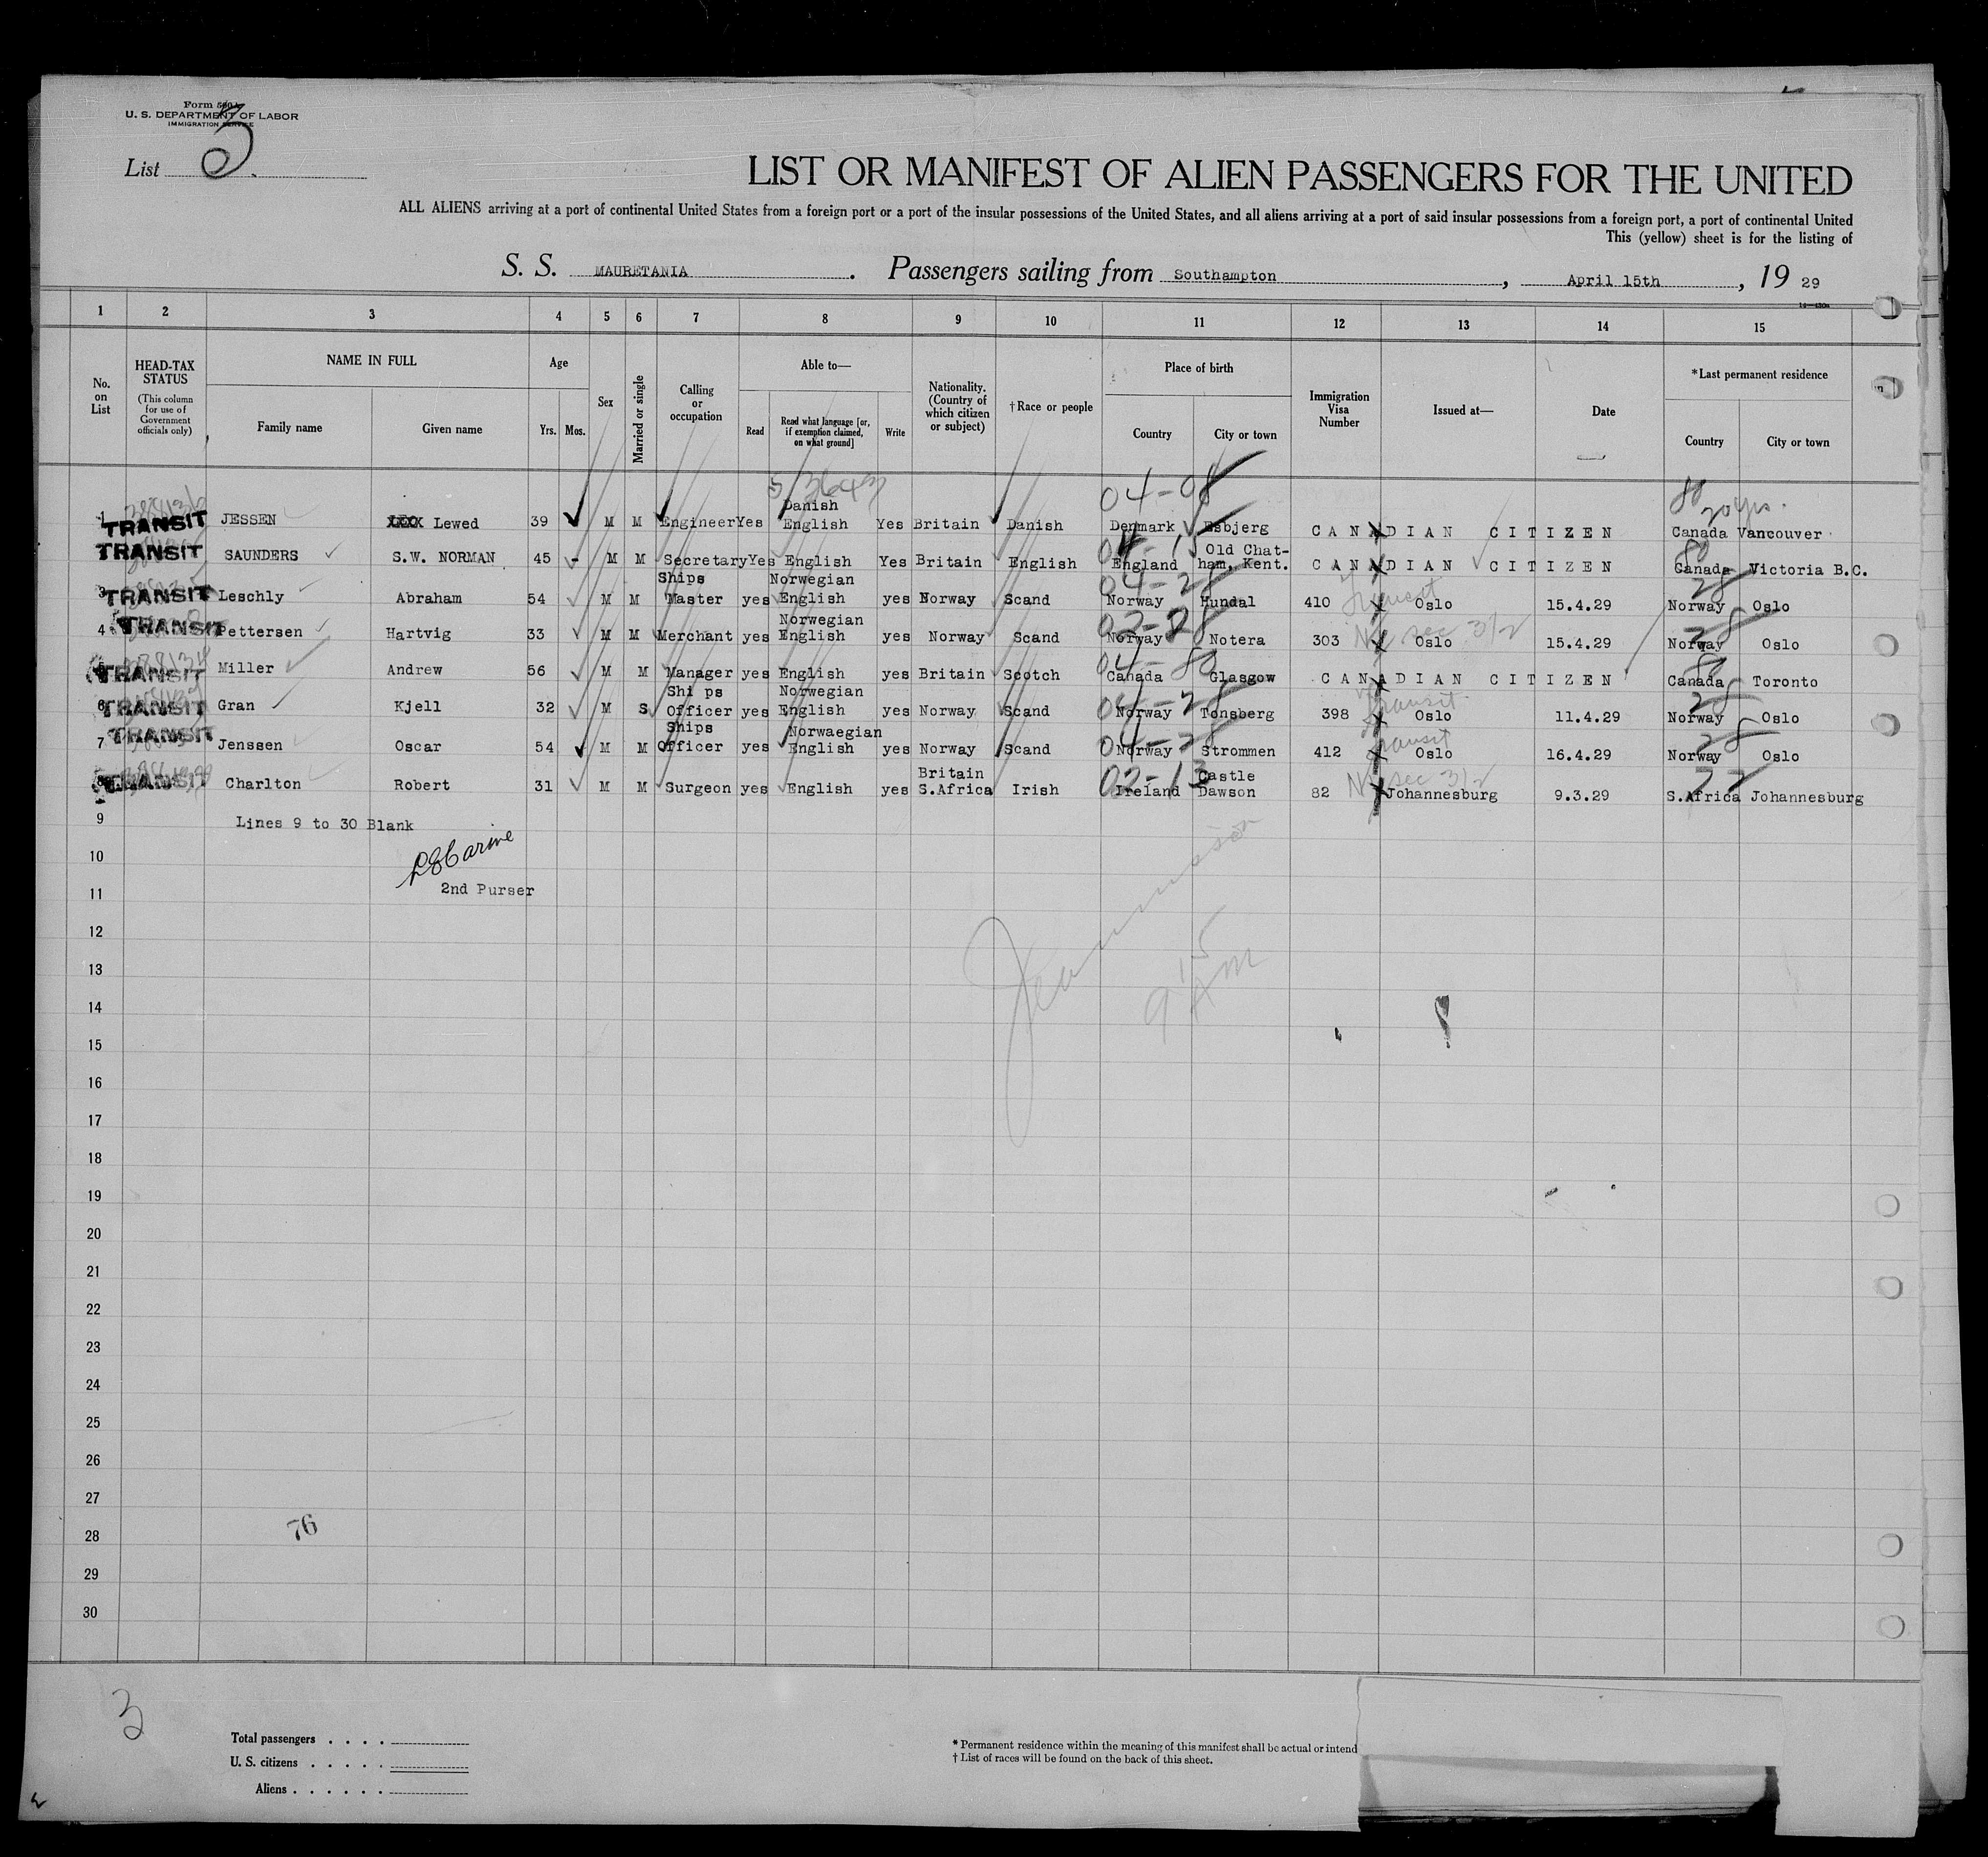 Form 500 A
U. S. DEPARTMENT OF LABOR
IMMIGRATION SERVICE
List 3.
LIST OR MANIFEST OF ALIEN PASSENGERS FOR THE UNITED
ALL ALIENS arriving at a port of continental United States from a foreign port or a port of the insular possessions of the United States, and all aliens arriving at a port of said insular possessions from a foreign port, a port of continental United
This (yellow) sheet is for the listing of
S. S. MAURETANIA. Passengers sailing from Southampton, April 15th, 19 29
1 2 3 4 5 6 7 8 9 10 11 12 13 14 15
No. on List
HEAD-TAX STATUS (This column for use of Government officials only)
NAME IN FULL
Family name Given name
Age
Yrs. Mos.
Sex
Married or single
Calling or occupation
Able to—
Read
Read what language [or, if exemption claimed, on what ground]
Write
Nationality. (Country of which citizen or subject)
†Race or people
Place of birth
Country City or town
Immigration Visa Number
Issued at—
Date
*Last permanent residence
Country City or town
04-08
20 yrs.
1 TRANSIT JESSEN Lewed 39 M M Engineer Yes Danish English Yes Britain Danish Denmark Esbjerg CANADIAN CITIZEN Canada Vancouver
TRANSIT SAUNDERS S.W. NORMAN 45 - M M Secretary Yes English Yes Britain English England Old Chat-ham, Kent. CANADIAN CITIZEN Canada Victoria B.C.
3 TRANSIT Leschly Abraham 54 M M Ships Master yes Norwegian English yes Norway Scand 04-28 Norway Hundal 410 Transit Oslo 15.4.29 28 Norway Oslo
4 TRANSIT Pettersen Hartvig 33 M M Merchant yes Norwegian English yes Norway Scand 02-28 Norway Notera 303 No sec 3/2 Oslo 15.4.29 28 Norway Oslo
5 TRANSIT Miller Andrew 56 M M Manager yes English yes Britain Scotch Canada Glasgow CANADIAN CITIZEN Canada Toronto
6 TRANSIT Gran Kjell 32 M S Ships Officer yes Norwegian English yes Norway Scand 04-28 Norway Tonsberg 398 Transit Oslo 11.4.29 28 Norway Oslo
7 TRANSIT Jenssen Oscar 54 M M Ships Officer yes Norwaegian English yes Norway Scand 04-28 Norway Strommen 412 Transit Oslo 16.4.29 28 Norway Oslo
8 TRANSIT Charlton Robert 31 M M Surgeon yes English yes Britain S.Africa Irish 02-13 Ireland Castle Dawson 82 No sec 3/2 Johannesburg 9.3.29 77 S.Africa Johannesburg
9 Lines 9 to 30 Blank
10
11 2nd Purser
12
13 9 15 AM
14
15
16
17
18
19
20
21
22
23
24
25
26
27
28 76
29
30
3
Total passengers
U. S. citizens
Aliens
* Permanent residence within the meaning of this manifest shall be actual or intend
† List of races will be found on the back of this sheet.